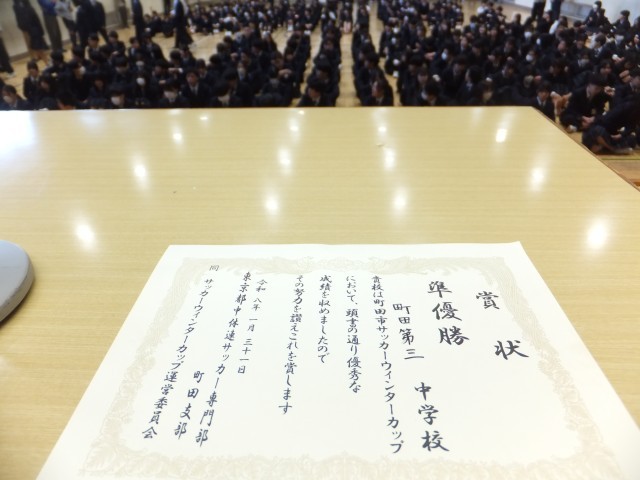 賞状
準優勝
町田第三 中学校
貴校は町田市サッカーウィンターカップ
において、頭書の通り優秀な
成績を収めましたので
その努力を讃えこれを賞します
令和八年一月三十一日
東京都中体連サッカー専門部
町田支部
同 サッカーウィンターカップ運営委員会